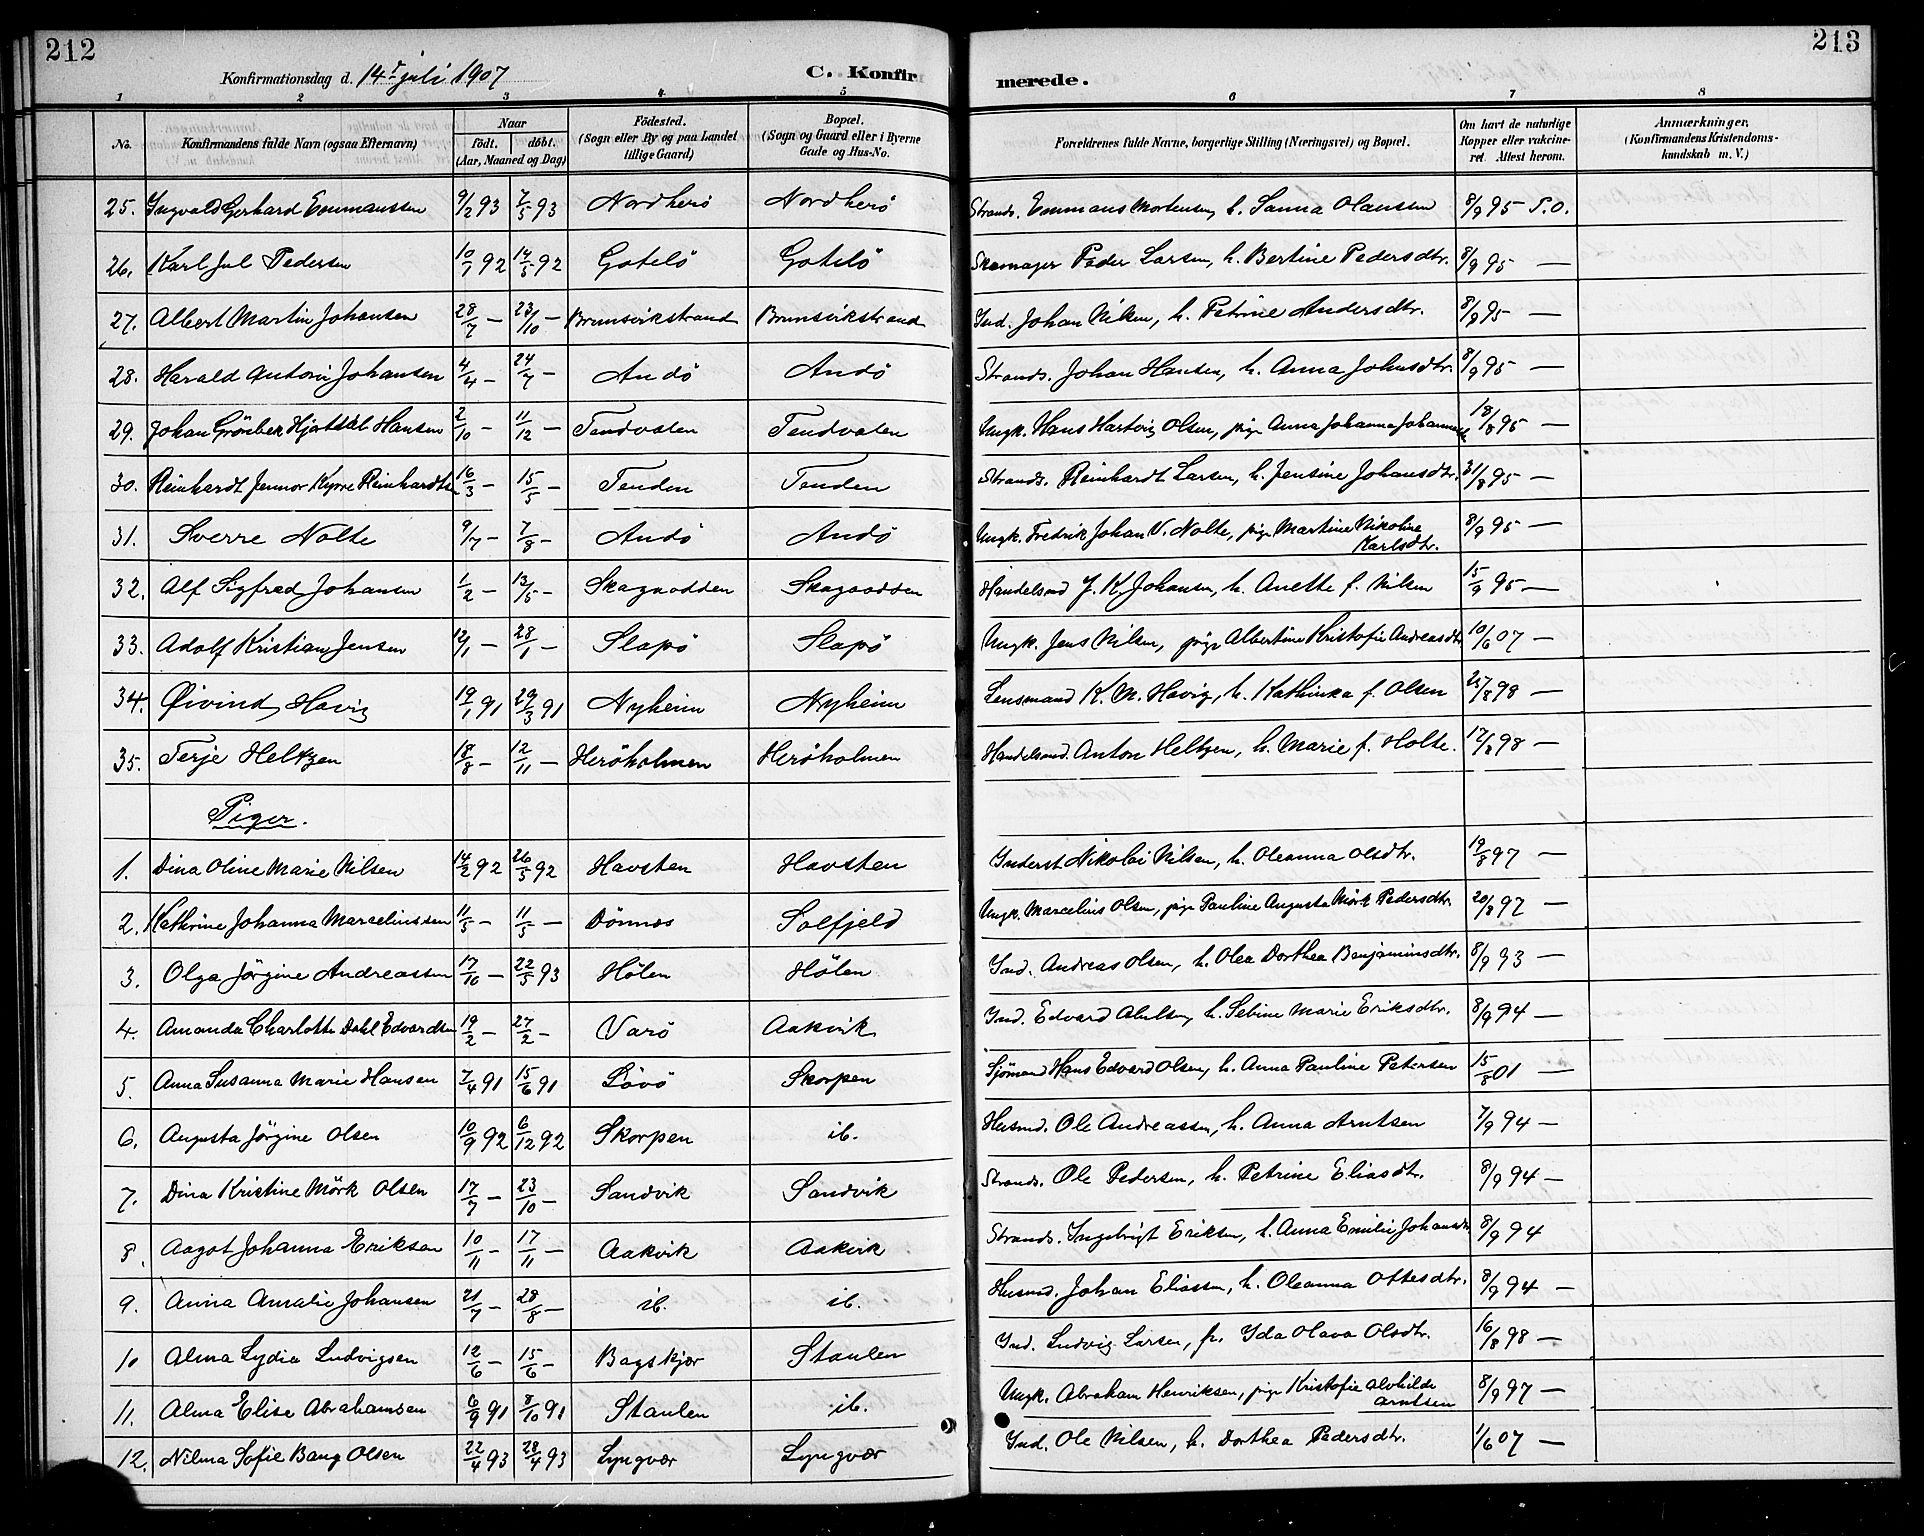 212
213
Konfirmationsdag d. 14de juli 1907
C. Konfirmerede.
1 2 3 4 5 6 7 8
No. | Konfirmandens fulde Navn (ogsaa Efternavn) | Naar født. døbt. (Aar, Maaned og Dag) | Fødested. (Sogn eller By og paa Landet tillige Gaard) | Bopæl. (Sogn og Gaard eller i Byerne Gade og Hus-No. | Forældrenes fulde Navne, borgerlige Stilling (Næringsvei) og Bopæl. | Om havt de naturlige Kopper eller vakcineret. Attest herom. | Anmærkninger. (Konfirmandens Kristendomskundskab m. V.)
25. Ingvald Gerhard Emmaussen | 9/2 93 | 7/5 93 | Nordherö | Nordherö | Strands. Emmaus Mortensen, h. Sanna Olausen | 8/9 95 S.O.
26. Karl Jul Pedersen | 10/1 92 | 14/5 92 | Gotelö | Gotelö | Skomager Peder Larsen, h. Bertine Pedersdtr. | 8/9 95 —
27. Albert Martin Johansen | 28/7 — | 23/10 — | Brunsvikstrand | Brunsvikstrand | Ind. Johan Nilsen, h. Petrine Andersdtr. | 8/9 95 —
28. Harald Antoni Johansen | 4/4 — | 24/7 — | Andö | Andö | Strands. Johan Hansen, h. Anna Johnsdtr. | 8/9 95 —
29. Johan Grönbek Hjortdal Hansen | 2/10 — | 11/12 — | Tendvalen | Tendvalen | Ungk. Hans Hartvig Olsen, pige Anna Johanna | 18/8 95 —
30. Reinhardt Jennor Kyrre Reinhardtsen | 16/3 — | 15/5 — | Tenden | Tenden | Strands. Reinhardt Larsen, h. Jensine Johansdtr. | 31/8 95 —
31. Sverre Nolte | 9/7 — | 7/8 — | Andö | Andö | Ungk. Fredrik Johan V. Nolte, pige Martine Nikoline Karlsdtr. | 8/9 95 —
32. Alf Sigfred Johansen | 1/2 — | 13/5 — | Skagaodden | Skagaodden | Handelsmd J. K. Johansen, h. Anette f. Nilsen | 15/9 95 —
33. Adolf Kristian Jensen | 12/1 — | 28/1 — | Slapö | Slapö | Ungk. Jens Nilsen, pige Albertine Kristofie Andreasdtr | 10/6 07 —
34. Øivind Havig | 19/1 91 | 29/3 91 | Nyheim | Nyheim | Lensmand K. M. Havig, h. Kathinka f. Olsen | 27/8 98 —
35. Terje Heltzen | 18/8 — | 12/11 — | Heröholmen | Heröholmen | Handelsmd. Anton Heltzen, h. Marie f. Holte. | 17/8 98 —
Piger.
1. Dina Oline Marie Nilsen | 14/2 92 | 26/5 92 | Havsten | Havsten | Inderst Nikolai Nilsen, h. Oleanna Olsdtr. | 19/8 97 —
2. Kathrine Johanna Marceliussen | 11/5 — | 11/5 — | Dönnæs | Solfjeld | Ungk. Marcelius Olsen, pige Pauline Augusta Mörk Pedersdtr. | 20/8 97 —
3. Olga Jörgine Andreassen | 17/10 — | 22/5 93 | Hølen | Hølen | Ind. Andreas Olsen, h. Olea Dorthea Benjaminsdtr. | 8/9 93 —
4. Amanda Charlotte Dahl Edvardsen | 19/2 — | 27/2 — | Varö | Aakvik | Ind. Edvard h. Sebine Marie Eriksdtr. | 8/9 94 —
5. Anna Susanna Marie Hansen | 7/4 91 | 15/6 91 | Lövö | Skorpen | Sjömand Hans Edvard Olsen, h. Anna Pauline Petersen | 15/8 01 —
6. Augusta Jörgine Olsen | 10/9 92 | 6/12 92 | Skorpen | ib. | Husmd. Ole Andreassen, h. Anna Arntsen | 7/9 94 —
7. Dina Kristine Mörk Olsen | 17/7 — | 23/10 — | Sandvik | Sandvik | Strands. Ole Pedersen, h. Petrine Eliasdtr. | 8/9 94 —
8. Aagot Johanna Eriksen | 10/11 — | 17/11 — | Aakvik | Aakvik | Strands. Ingebrigt Eriksen, h. Anna Emilie Johansdtr | 8/9 94
9. Anna Amalie Johansen | 21/7 — | 28/8 — | ib. | ib. | Husmd. Johan Eliassen, h. Oleanna Ottesdtr. | 8/9 94 —
10 Alma Lydia Ludvigsen | 12/6 — | 15/6 — | Bagskjær | Staulen | Ind. Ludvig Larsen, h. Ida Olava Olsdtr. | 16/8 98 —
11. Alma Elise Abrahamsen | 6/9 91 | 8/10 91 | Staulen | ib. | Ungk. Abraham Henriksen, pige Kristofie Alvhilde Arntsen | 8/9 97 —
12. Nilma Sofie Bang Olsen | 22/4 93 | 28/4 93 | Lyngvær | Lyngvær | Ind. Ole Nilsen, h. Dorthea Pedersdtr. | 1/6 07 —